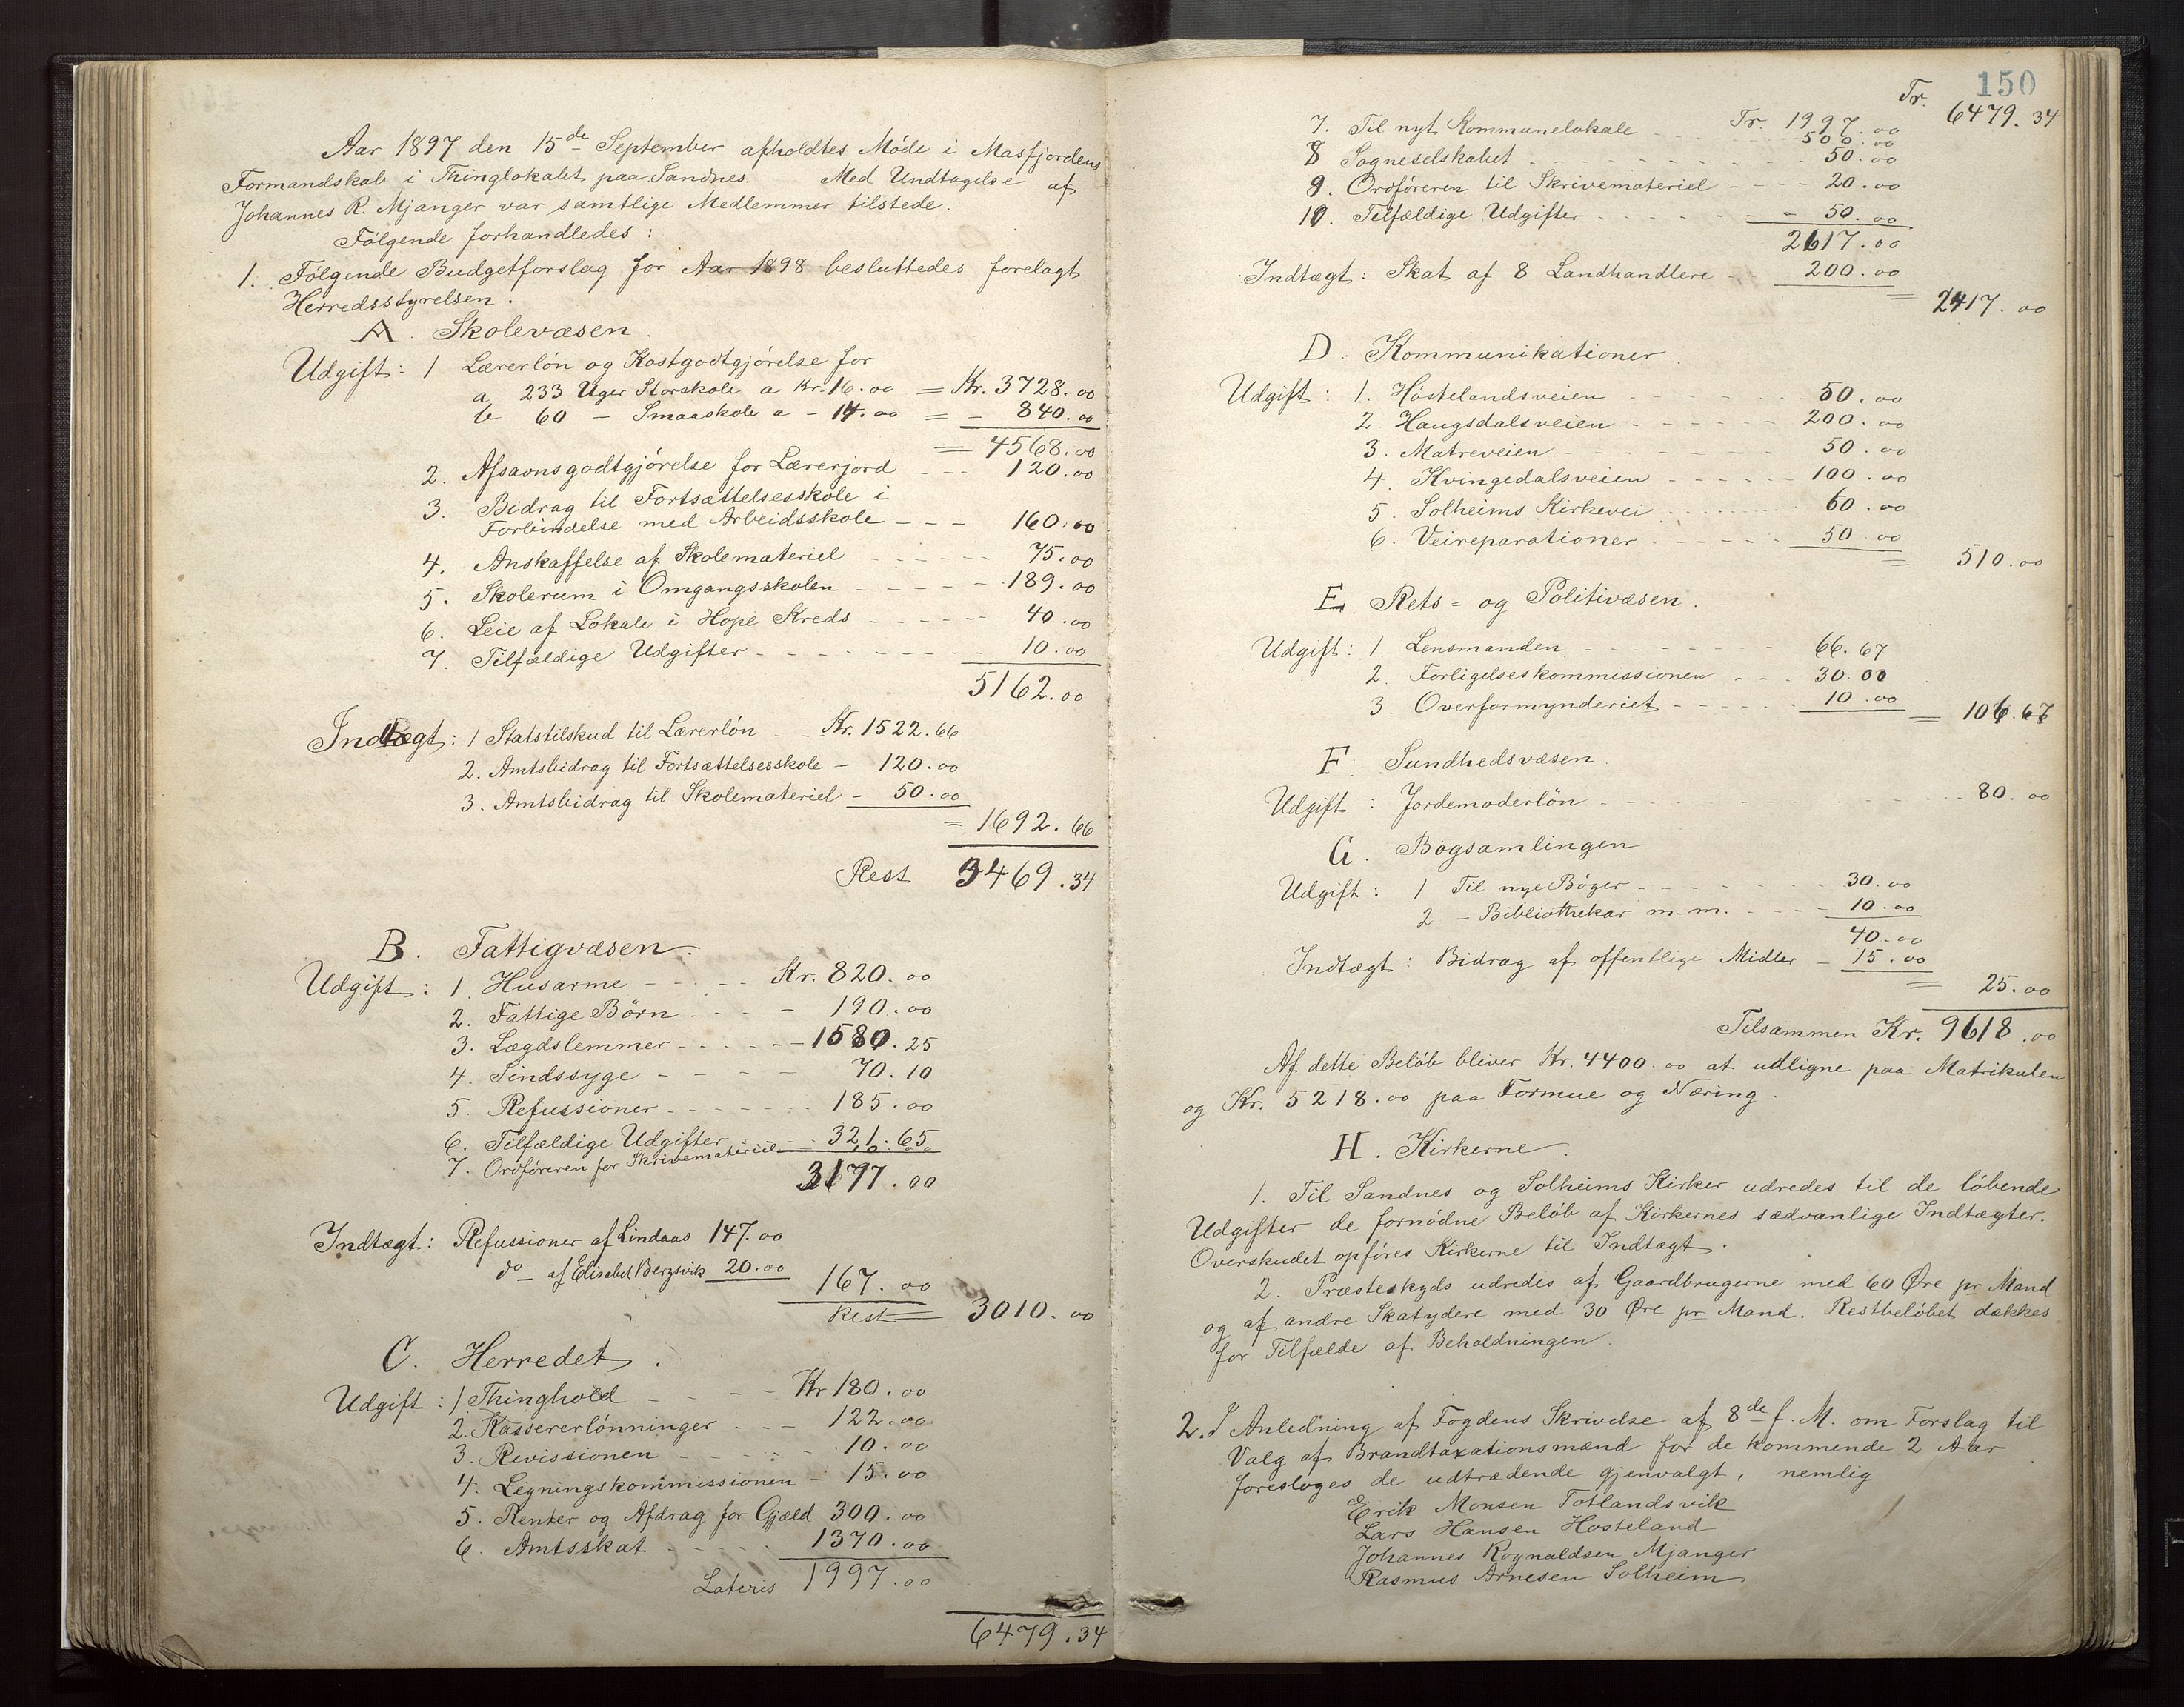 Aar 1897 den 15de September afholdtes Møde i Masfjordens
Formandskab i Thinglokalet paa Sandnes. Med Undtagelse af
Johannes R. Mjanger var samtlige Medlemmer tilstede.
Følgende forhandledes:
1. Følgende Budgetforslag for Aar 1898 besluttedes forelagt
Herredsstyrelsen.
A. Skolevæsen.
Udgift: 1 Lærerløn og Kostgodtgjørelse for
a 233 Uger Storskole a Kr. 16.00 = Kr. 3728.00
b 60 — Smaaskole a - 14.00 = - 840.00
= 4568.00
2. Afsavnsgodtgjørelse for Lærerjord - - - 120.00
3. Bidrag til Fortsættelsesskole i
Forbindelse med Arbeidsskole - - - 160.00
4. Anskaffelse af Skolemateriel - - - - - 75.00
5. Skolerum i Omgangsskolen - - - - - 189.00
6. Leie af Lokale i Hope Kreds - - - - - - 40.00
7. Tilfældige Udgifter - - - - - - - - - 10.00
5162.00
Indtægt: 1 Statstilskud til Lærerløn - - Kr. 1522.66
2. Amtsbidrag til Fortsættelsesskole - 120.00
3. Amtsbidrag til Skolemateriel - 50.00
= 1692.66
Rest 3469.34
B. Fattigvæsen.
Udgift: 1. Husarme - - - - - Kr. 820.00
2. Fattige Børn - - - - 190.00
3. Lægdslemmer - - - - - - 1580.25
4. Sindssyge - - - - - 70.10
5. Refussioner - - - - - - - 185.00
6. Tilfældige Udgifter - - - 321.65
7. Ordføreren for Skrivemateriel - 10.00
3177.00
Indtægt: Refussioner af Lindaas 147.00
do - af Elisabet Bergsvik 20.00
167.00
Rest = 3010.00
C. Herredet.
Udgift: 1 Thinghold - - - - Kr 180.00
2. Kassererlønninger - - - 122.00
3. Revissionen - - - - - 10.00
4. Ligningskommissionen - 15.00
5. Renter og Afdrag for Gjæld 300.00
6. Amtsskat - - - - - 1370.00
Lateris 1997.00
6479.34
150
Tr. 6479.34
Tr. 1997.00
7. Til nyt Kommunelokale - - - 500.00
8 Sogneselskabet - - - - - - - - - 50.00
9. Ordføreren til Skrivemateriel - - - - 20.00
10. Tilfældige Udgifter - - - - - - - 50.00
2617.00
Indtægt: Skat af 8 Landhandlere - - 200.00
= 2417.00
D. Kommunikationer.
Udgift: 1. Høstelandsveien - - - - - - 50.00
2. Haugsdalsveien - - - - - - 200.00
3. Matreveien - - - - - - - - 50.00
4. Kvingedalsveien - - - - - - 100.00
5. Solheims Kirkevei - - - - - - 60.00
6. Veireparationer - - - - - - 50.00
= 510.00
E. Rets- og Politivæsen.
Udgift: 1. Lensmanden - - - - - - - 66.67
2. Forligelseskommissionen - - - 30.00
3. Overformynderiet - - - - - 10.00
= 106.67
F. Sundhedsvæsen.
Udgift: Jordemoderløn - - - - - - - - - - - 80.00
G. Bogsamlingen
Udgift: 1 Til nye Bøger - - - - - - - 30.00
2 - Bibliothekar m. m. - - - - 10.00
40.00
Indtægt: Bidrag af offentlige Midler - 15.00
= 25.00
Tilsammen Kr. 9618.00
Af dette Beløb bliver Kr. 4400.00 at udligne paa Matrikulen
og Kr. 5218.00 paa Formue og Næring.
H. Kirkerne.
1. Til Sandnes og Solheims Kirker udredes til de løbende
Udgifter de fornødne Beløb af Kirkernes sædvanlige Indtægter.
Overskudet opføres Kirkerne til Indtægt.
2. Præsteskyds udredes af Gaardbrugerne med 60 Øre pr Mand
og af andre Skatydere med 30 Øre pr Mand. Restbeløbet dækkes
for Tilfælde af Beholdningen.
2. I Anledning af Fogdens Skrivelse af 8de f. M. om Forslag til
Valg af Brandtaxationsmænd for de kommende 2 Aar
foresloges de udtrædende gjenvalgt, nemlig
Erik Monsen Totlandsvik
Lars Hansen Hosteland
Johannes Rognaldsen Mjanger
Rasmus Arnesen Solheim